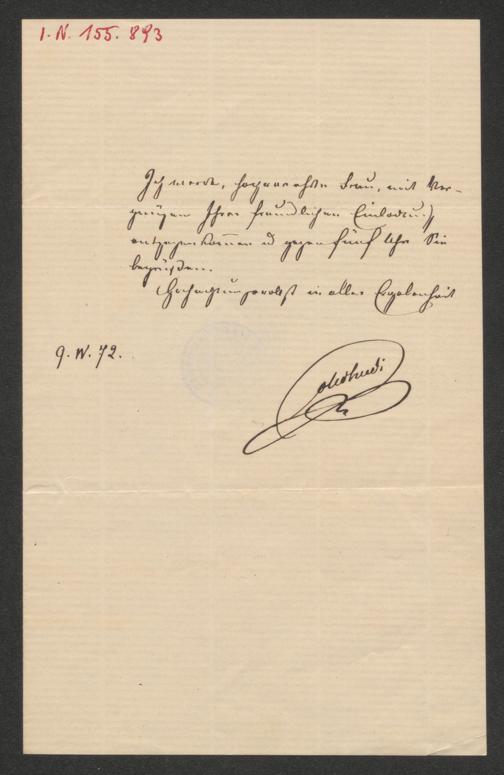 I. N. 155. 893
Ich werde, hochverehrte Frau, mit Ver-
gnügen Ihrer freundlichen Einladung
entgegenkommen u gegen fünf Uhr Sie
begrüßen.
Hochachtungsvollst in aller Ergebenheit
9. IV. 72.